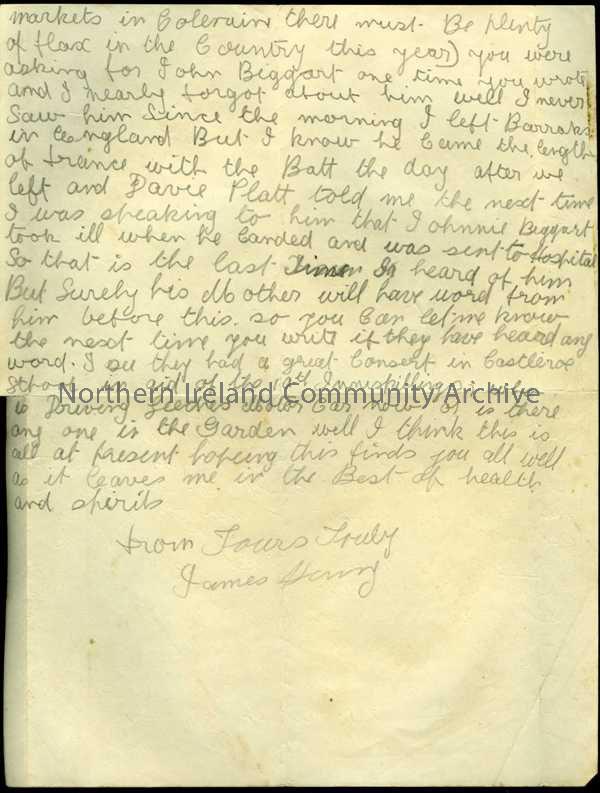 markets in Colerain there must Be plenty
of flax in the Country this year) you were
asking for John Biggart one time you wrote
and I nearly forgot about him well I never
Saw him Since the morning I left Barraks
in England But I know he Came the length
of france with the Batt the day after we
left and Davie Platt told me the next time
I was speaking to him that Johnnie Biggart
took ill when he landed and was sent to Hospital
So that is the last I heard of him
But Surely his Mother will have word from
him before this. so you Can let me know
the next time you write if they have heard any
word. I see they had a great Consert in Castleroe
in aid of the
Northern Ireland Community Archive
is Driving Motor Car now or is there
any one in the Garden will I think this is
all at Present hoping this finds you all well
as it leaves me in the Best of health
and spirits
from Yours Truly
James